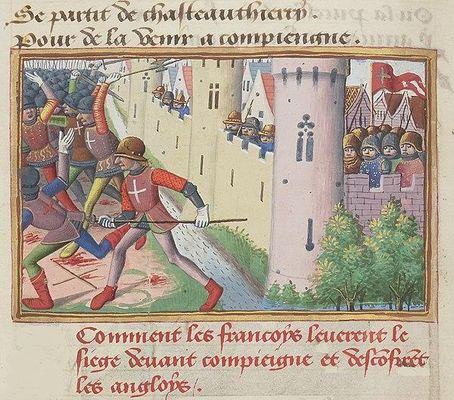 Se partit de chasteauthierry.
Pour de la venir a compiengne.
Comment les francoys leverent le
siege devant compieigne et desconfirēt
les angloys.